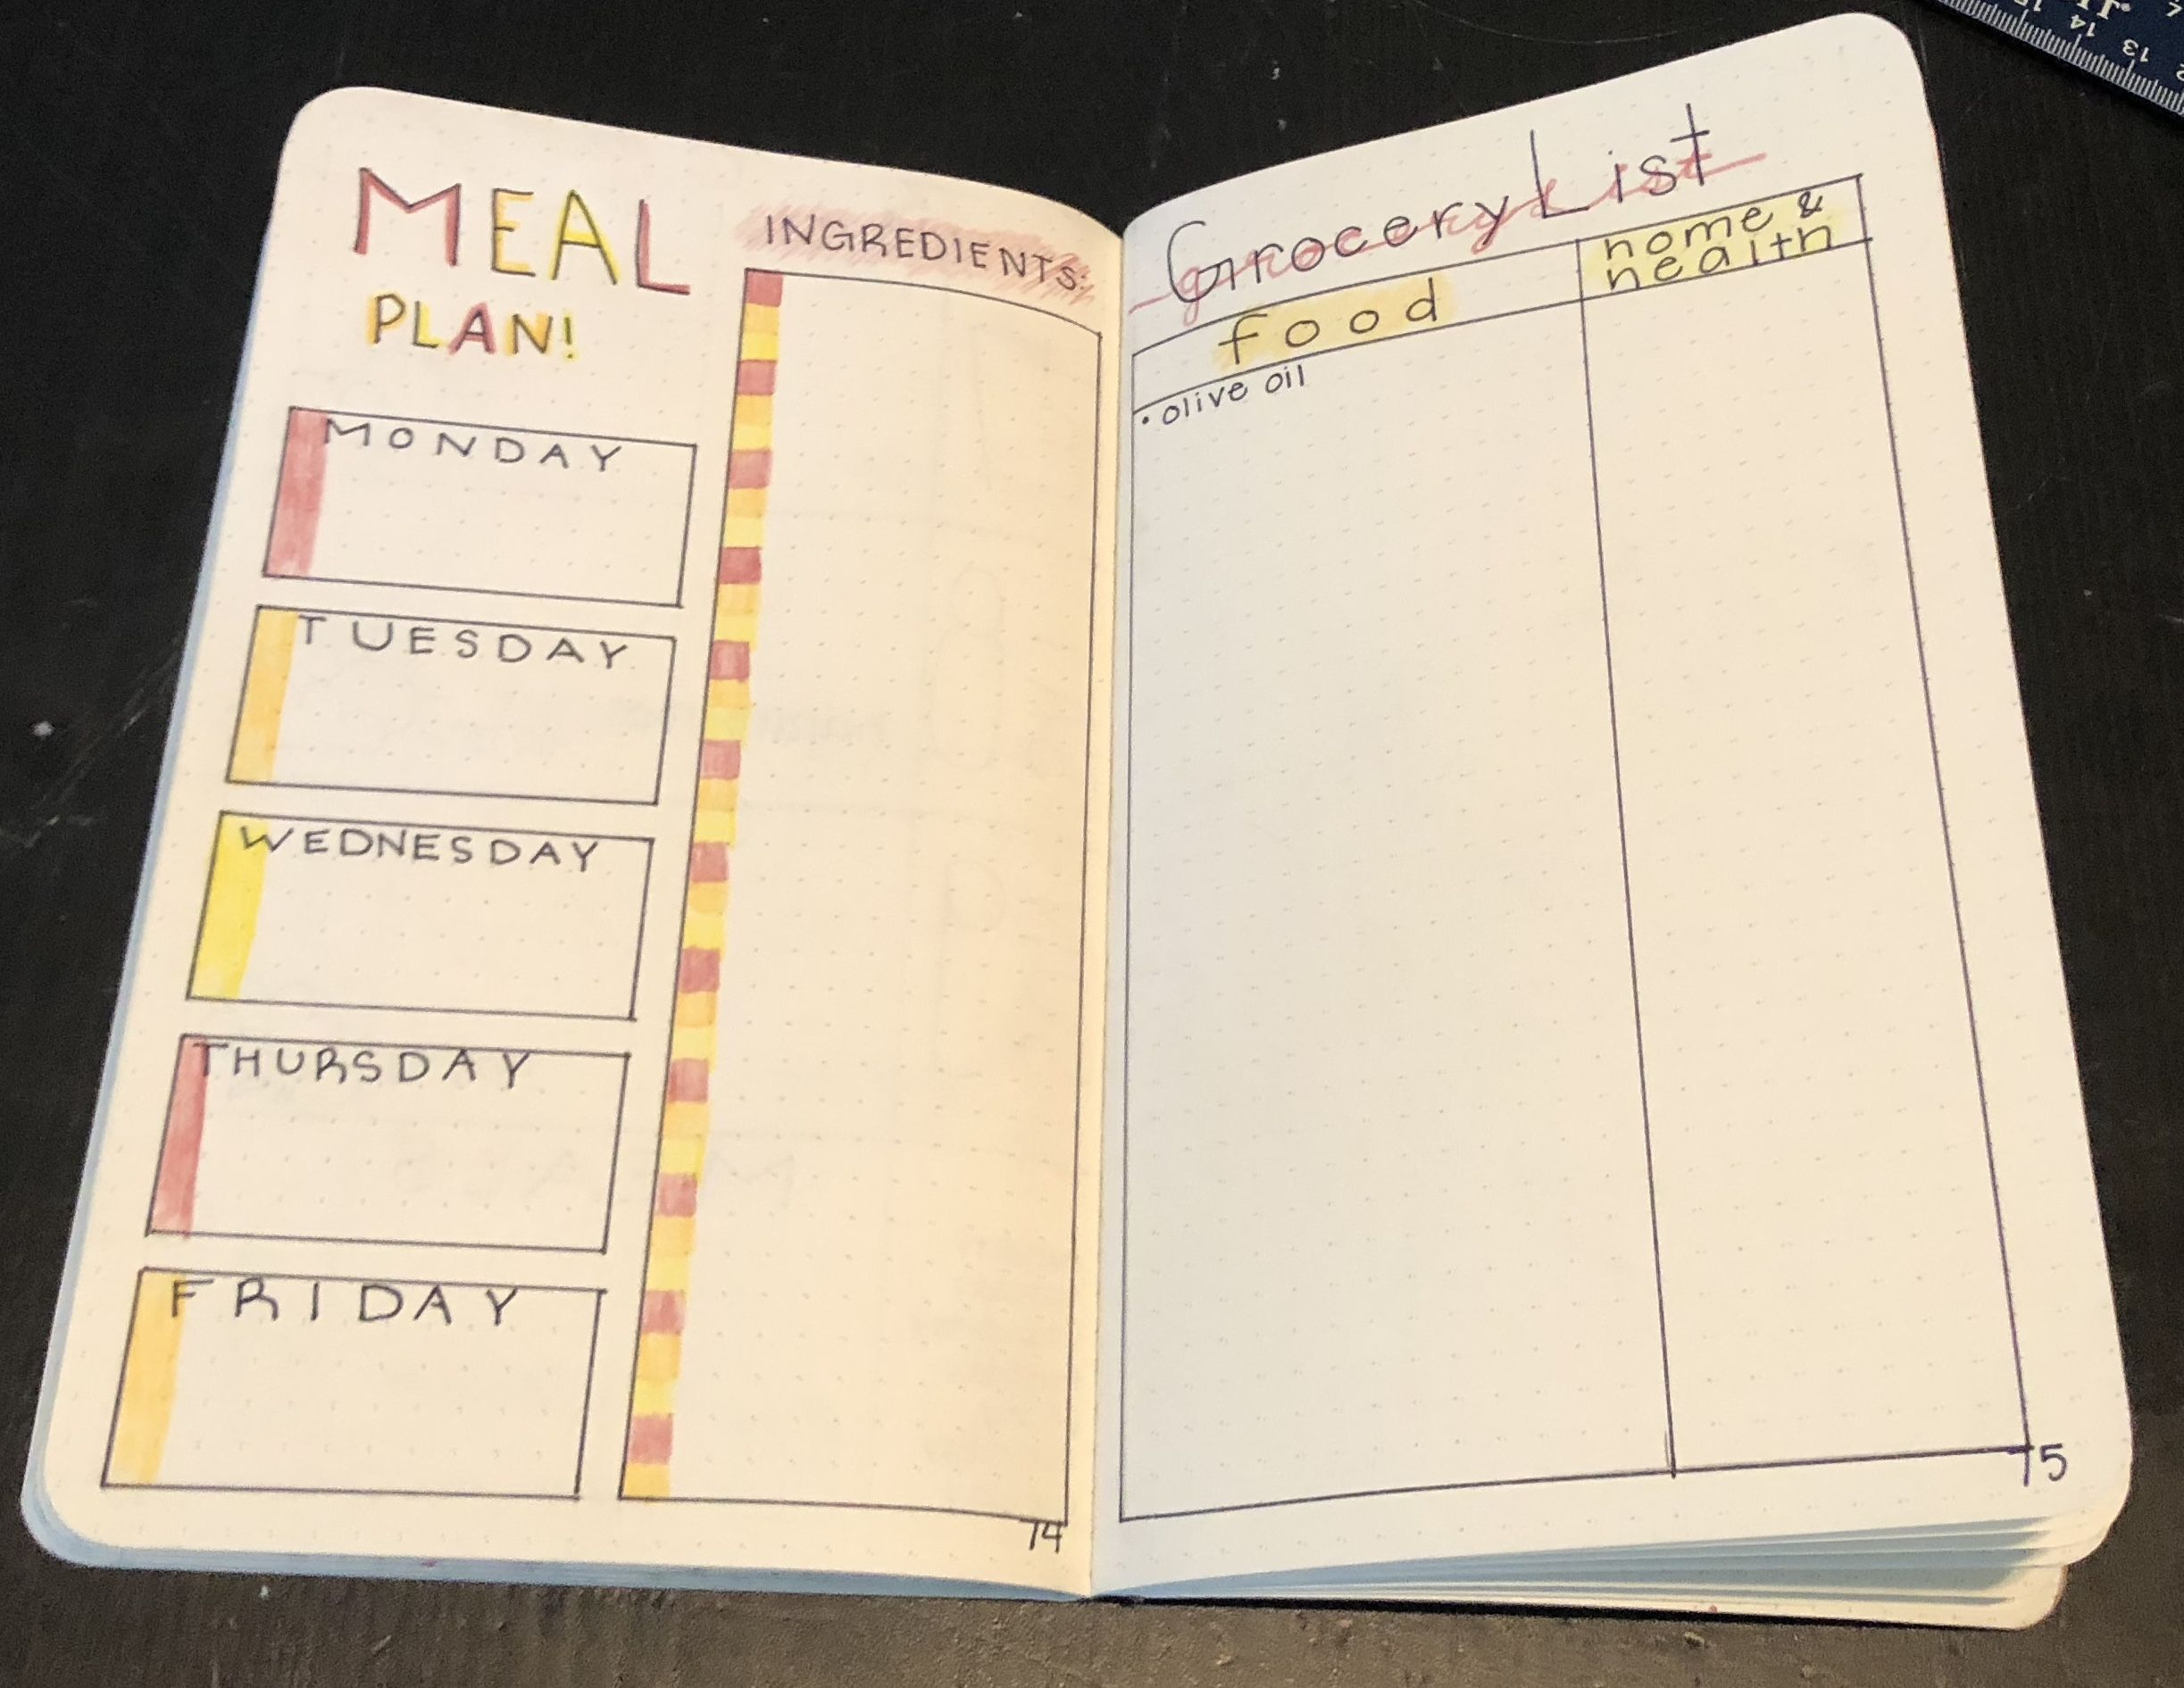 MEAL
PLAN!
INGREDIENTS:
MONDAY
TUESDAY
WEDNESDAY
THURSDAY
FRIDAY
74
Grocery List
grocery list
food
home &
health
• olive oil
75
15
14
13